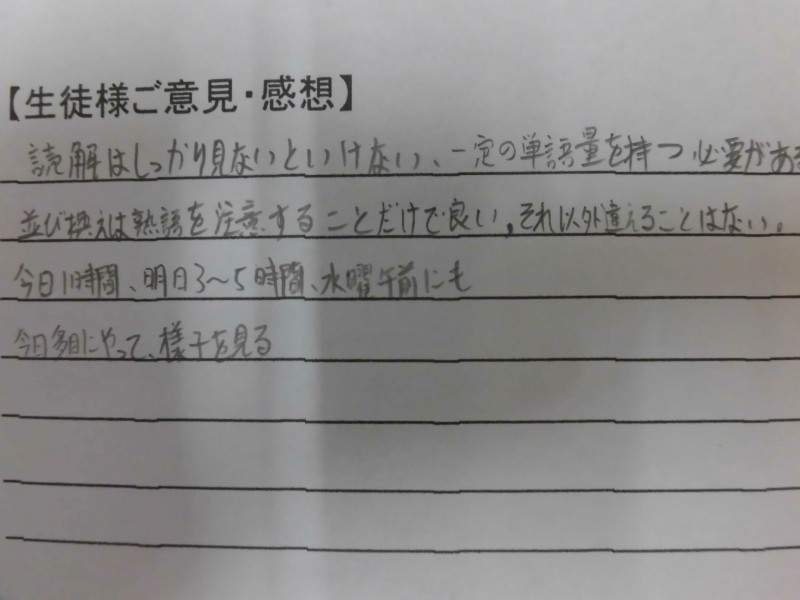 【生徒様ご意見・感想】
読解はしっかり見ないといけない、一定の単語量を持つ必要がある
並び換えは熟語を注意することだけで良い。それ以外違えることはない。
今日1時間、明日3〜5時間、水曜午前にも
今日多目にやって、様子を見る